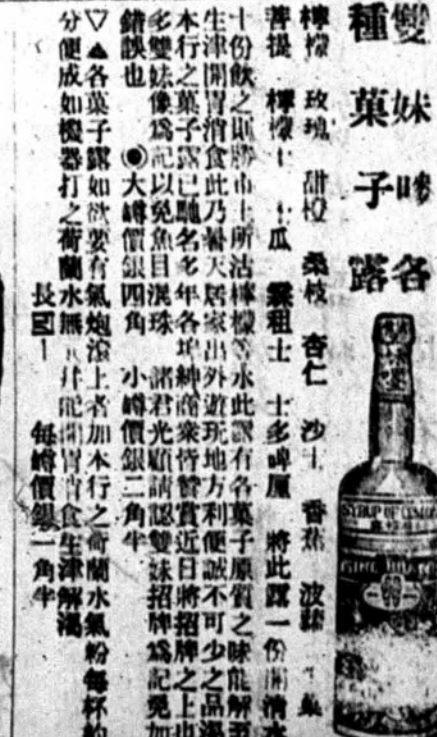 雙妹嘜各
種菓子露
檸檬 玫瑰 甜橙 桑枝 杏仁 沙士 香蕉 波蘿
菩提 檸檬士 士 瓜 租士 士多啤厘 將此露一份開清水
十份飲之則勝市上所沽檸檬等水此露有各菓子原質之味能解
生津開胃消食此乃暑天居家出外遊玩地方利便誠不可少之品
本行之菓子露已馳名多年各埠紳商衆皆讚賞近日將招牌之上
多雙妹像爲記以免魚目混珠 諸君光顧請認雙妹招牌爲記免
錯誤也 ◉大罇價銀四角 小罇價銀二角半
▽▲各菓子露如欲要有氣炮滾上者加本行之荷蘭水氣粉每杯約
分便成如機器打之荷蘭水無 幷能開胃消食生津解渴
每罇價銀一角半
SYRUP OF